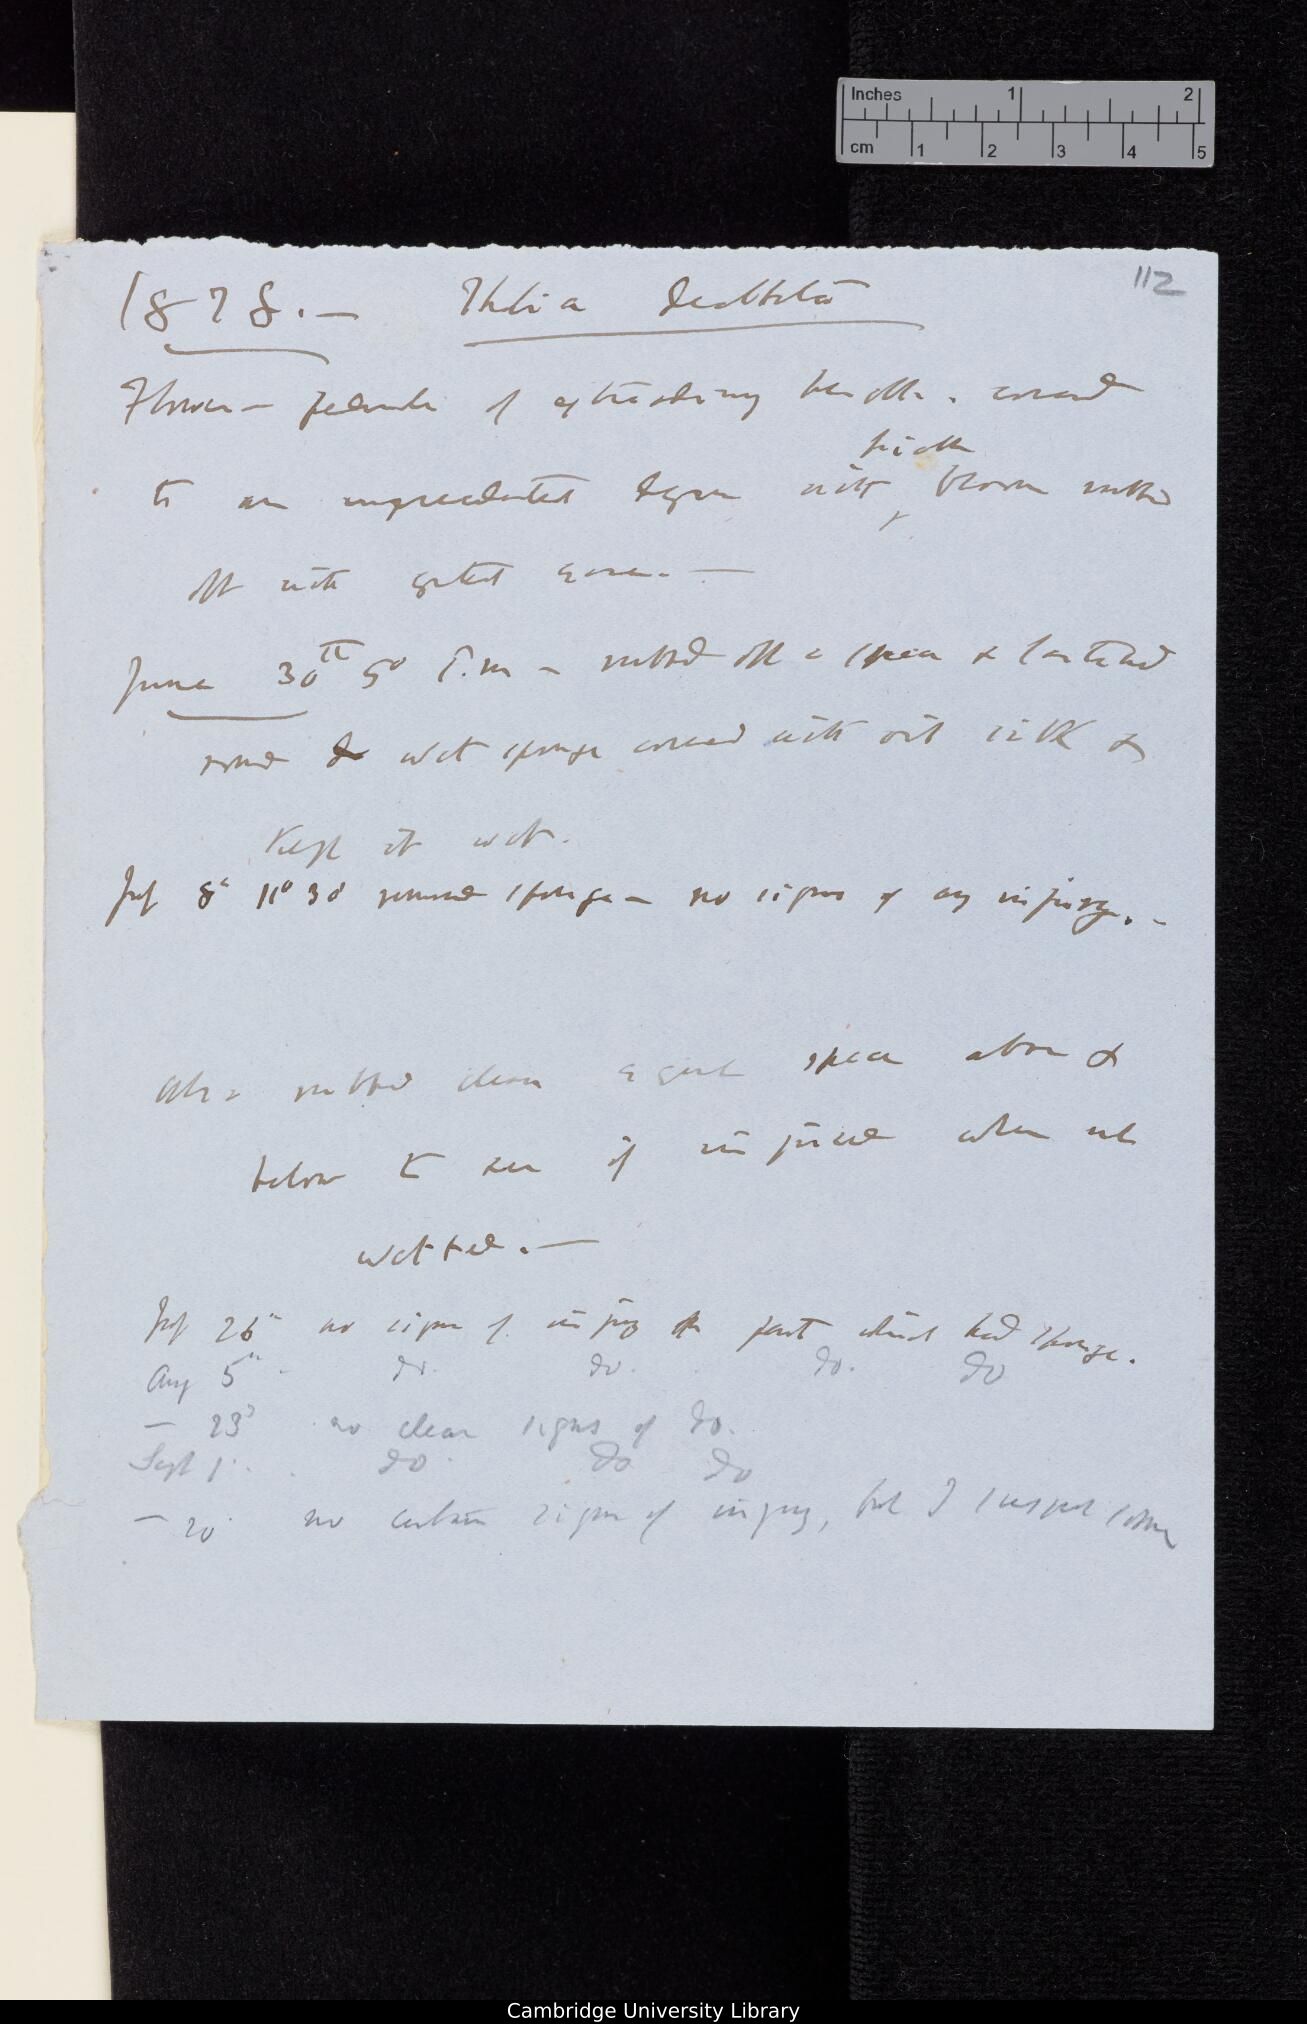 Inches 1 2
cm 1 2 3 4 5
112
1878.— Thalia dealbata
Flower-peduncle of extraordinary length. covered
thick
to an unprecedented degree with bloom rubbed
off with greatest ease.—
June 30th 5° P.m — rubbed off a space & fastened
round wet sponge covered with oil silk &
Kept it wet.
July 8th 11° 30' removed sponge — no signs of any injury.—
Also rubbed clean equal space above &
below to see if injured when not
wetted.—
July 26th no signs of injury on part which had sponge.
Aug 5th. do. do. do. do
— 23d no clear signs of do.
Sept 1. do. do do
— 20 no certain signs of injury, but I suspect some
Cambridge University Library